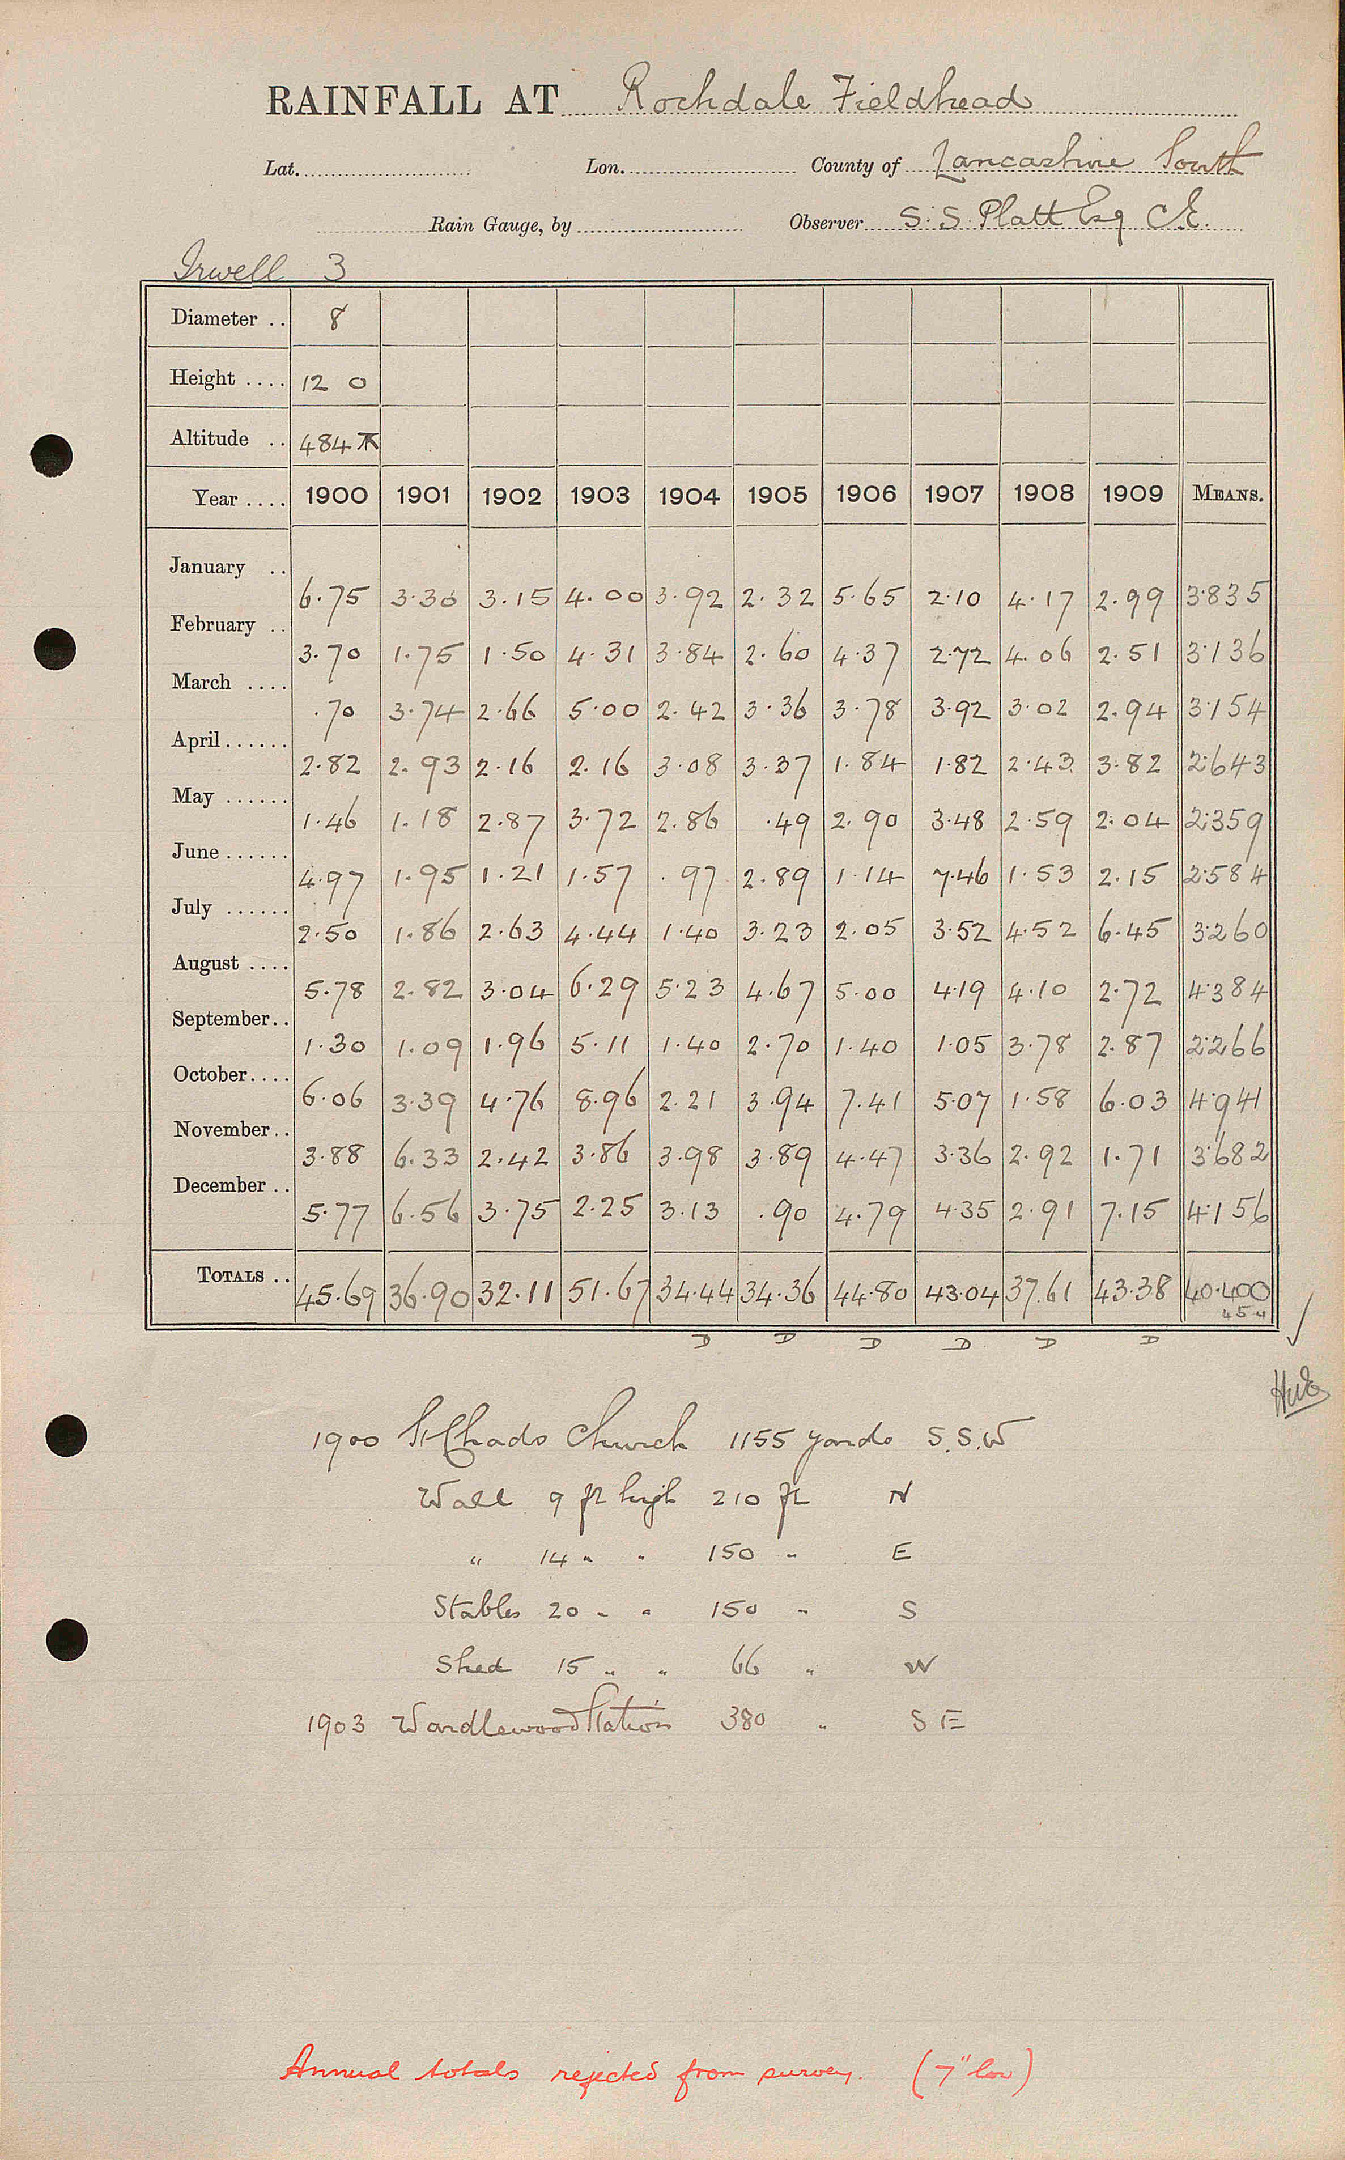 RAINFALL AT Rochdale Fieldhead
Lat. Lon. County of Lancashire South
Rain Gauge, by Observer S. S. Platt Esq C.E.
Irwell 3
Diameter .. 8
Height .... 12 0
Altitude .. 484
Year .... 1900 1901 1902 1903 1904 1905 1906 1907 1908 1909 MEANS.
January .. 6.75 3.30 3.15 4.00 3.92 2.32 5.65 2.10 4.17 2.99 3.835
February .. 3.70 1.75 1.50 4.31 3.84 2.60 4.37 2.72 4.06 2.51 3.136
March .... .70 3.74 2.66 5.00 2.42 3.36 3.78 3.92 3.02 2.94 3.154
April...... 2.82 2.93 2.16 2.16 3.08 3.37 1.84 1.82 2.43 3.82 2.643
May ...... 1.46 1.18 2.87 3.72 2.86 .49 2.90 3.48 2.59 2.04 2.359
June ...... 4.97 1.95 1.21 1.57 .97 2.89 1.14 7.46 1.53 2.15 2.584
July ...... 2.50 1.86 2.63 4.44 1.40 3.23 2.05 3.52 4.52 6.45 3.260
August .... 5.78 2.82 3.04 6.29 5.23 4.67 5.00 4.19 4.10 2.72 4.384
September.. 1.30 1.09 1.96 5.11 1.40 2.70 1.40 1.05 3.78 2.87 2.266
October.... 6.06 3.39 4.76 8.96 2.21 3.94 7.41 5.07 1.58 6.03 4.941
November.. 3.88 6.33 2.42 3.86 3.98 3.89 4.47 3.36 2.92 1.71 3.682
December .. 5.77 6.56 3.75 2.25 3.13 .90 4.79 4.35 2.91 7.15 4.156
TOTALS .. 45.69 36.90 32.11 51.67 34.44 34.36 44.80 43.04 37.61 43.38 40.400
D D D D D D
1900 St Chads Church 1155 yards S.S.W
Wall 9 ft high 210 ft N
" 14 " " 150 " E
Stables 20 " " 150 " S
Shed 15 " " 66 " W
1903 Wardlewood Station 380 " S E
Annual totals rejected from survey. (7" low)